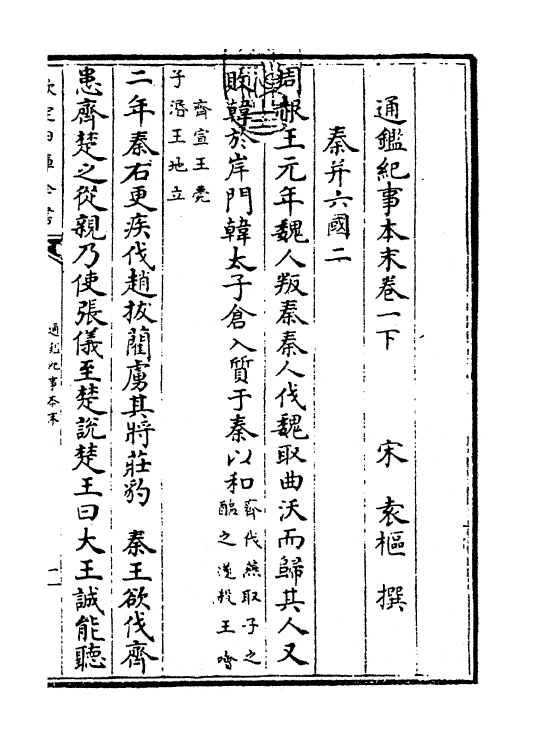 通鑑紀事本末卷一下
宋 袁樞 撰
秦并六國二
周赧王元年魏人叛秦秦人伐魏取曲沃而歸其人又
敗韓於岸門韓太子倉入質于秦以和
齊伐燕取子之
醢之遂殺王噲
齊宣王薨
子湣王地立
二年秦右更疾伐趙拔藺虜其將莊豹 秦王欲伐齊
患齊楚之從親乃使張儀至楚說楚王曰大王誠能聽
欽定四庫全書
通鑑紀事本末
一